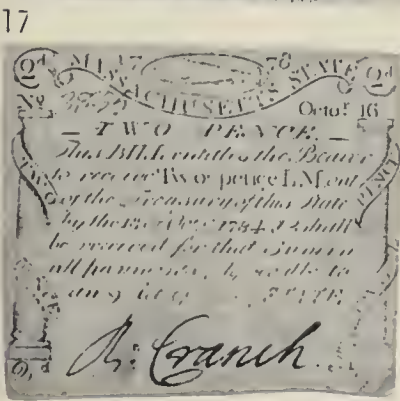 17
2d MASSACHUSETTS STATE 2d
17 78
No Octor 16
TWO PENCE.
This Bill entitles the Bearer
to receive Two pence L.M. out
of the Treasury of this State
by the Octr 1784 & shall
be received for that Sum in
all payments,
STATE
TWO
PENCE
R: Cranch